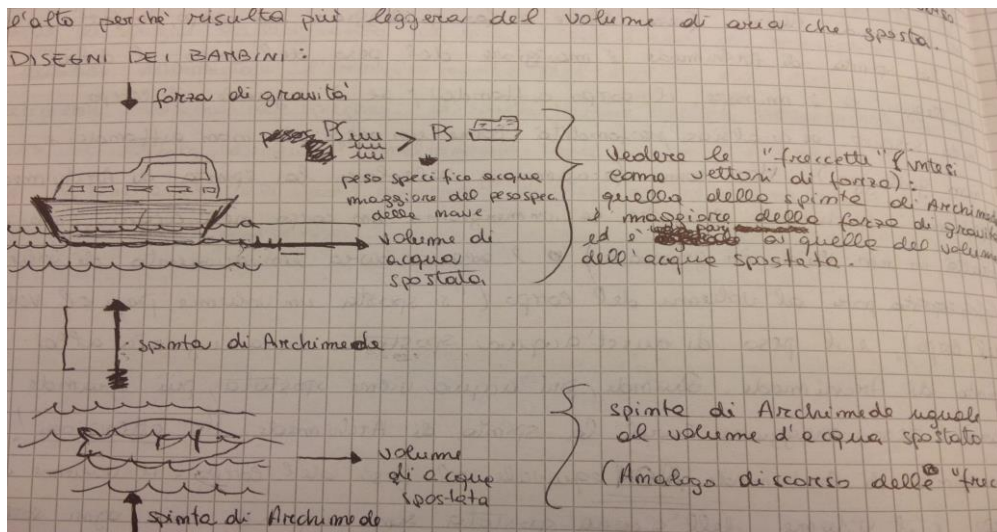 l'alto perché risulta più leggera del volume di aria che sposta.
DISEGNI DEI BAMBINI:
forza di gravità
PS > PS
peso specifico acqua
maggiore del peso spec.
della nave
volume di
acqua
spostata
Vedere le "freccette" (intesi
come vettori di forza):
quella della spinta di Archimede
è maggiore della forza di gravità
ed è pari a quella del volume
dell'acqua spostata.
spinta di Archimede
volume
di acqua
spostata
spinta di Archimede uguale
al volume d'acqua spostato
(Analogo discorso delle "frec
spinta di Archimede